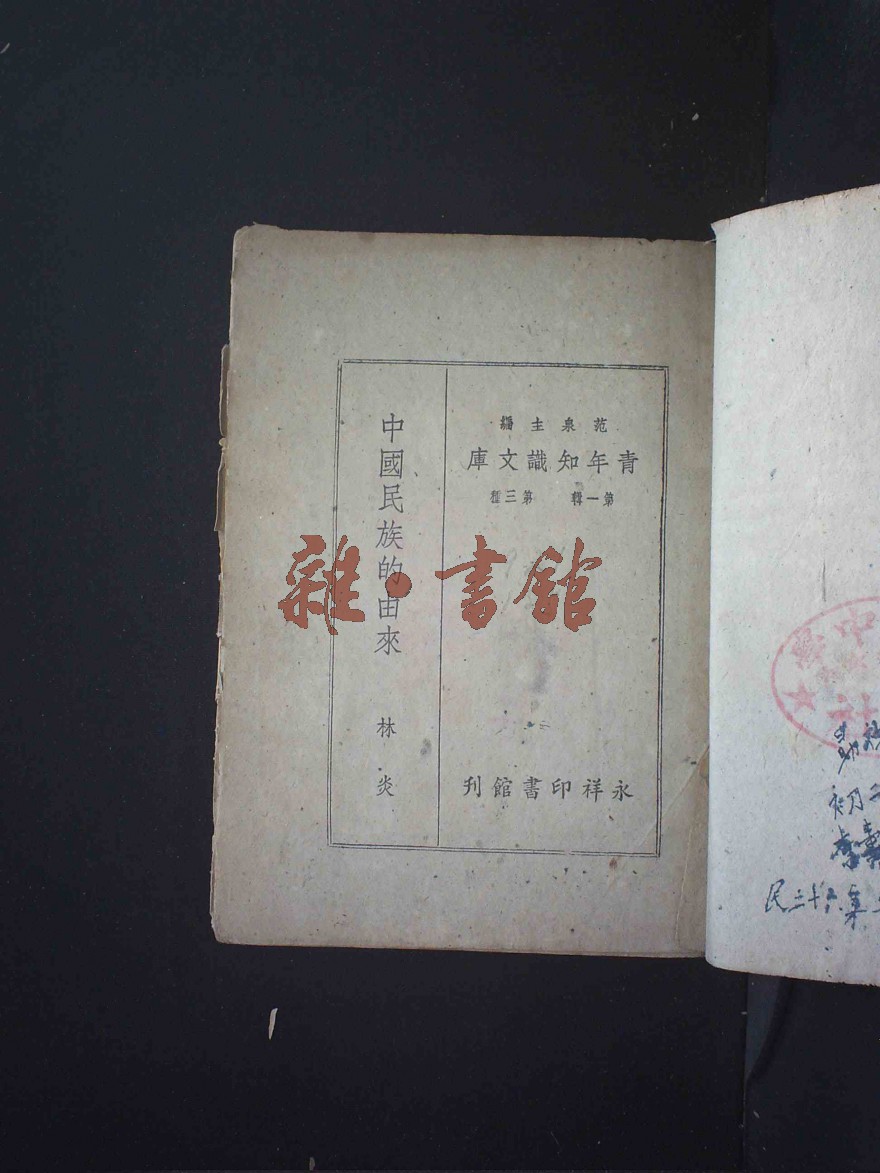 范泉主編
青年知識文庫
第一輯 第三種
中國民族的由來
林炎
永祥印書館刊
雜·書館
中
社
民三十六年